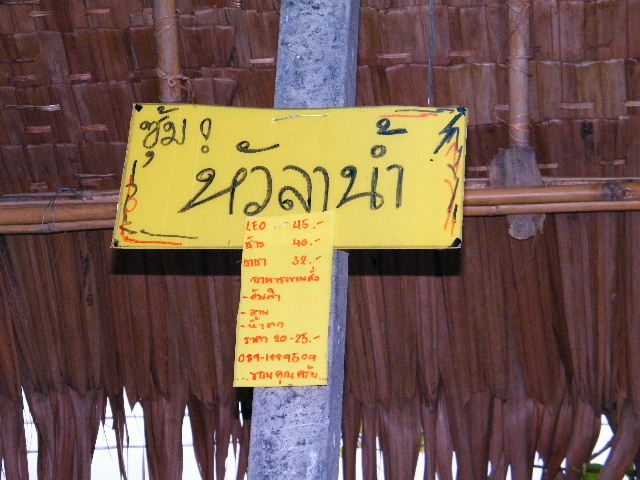 ซุ้ม!
หัวลาน้ำ
LEO 45.-
ช้าง 40.-
อาชา 32.-
อาหารตามสั่ง
- ส้มตำ
- ลาบ
- น้ำตก
ราคา 20-25.-
...ขอบคุณครับ...